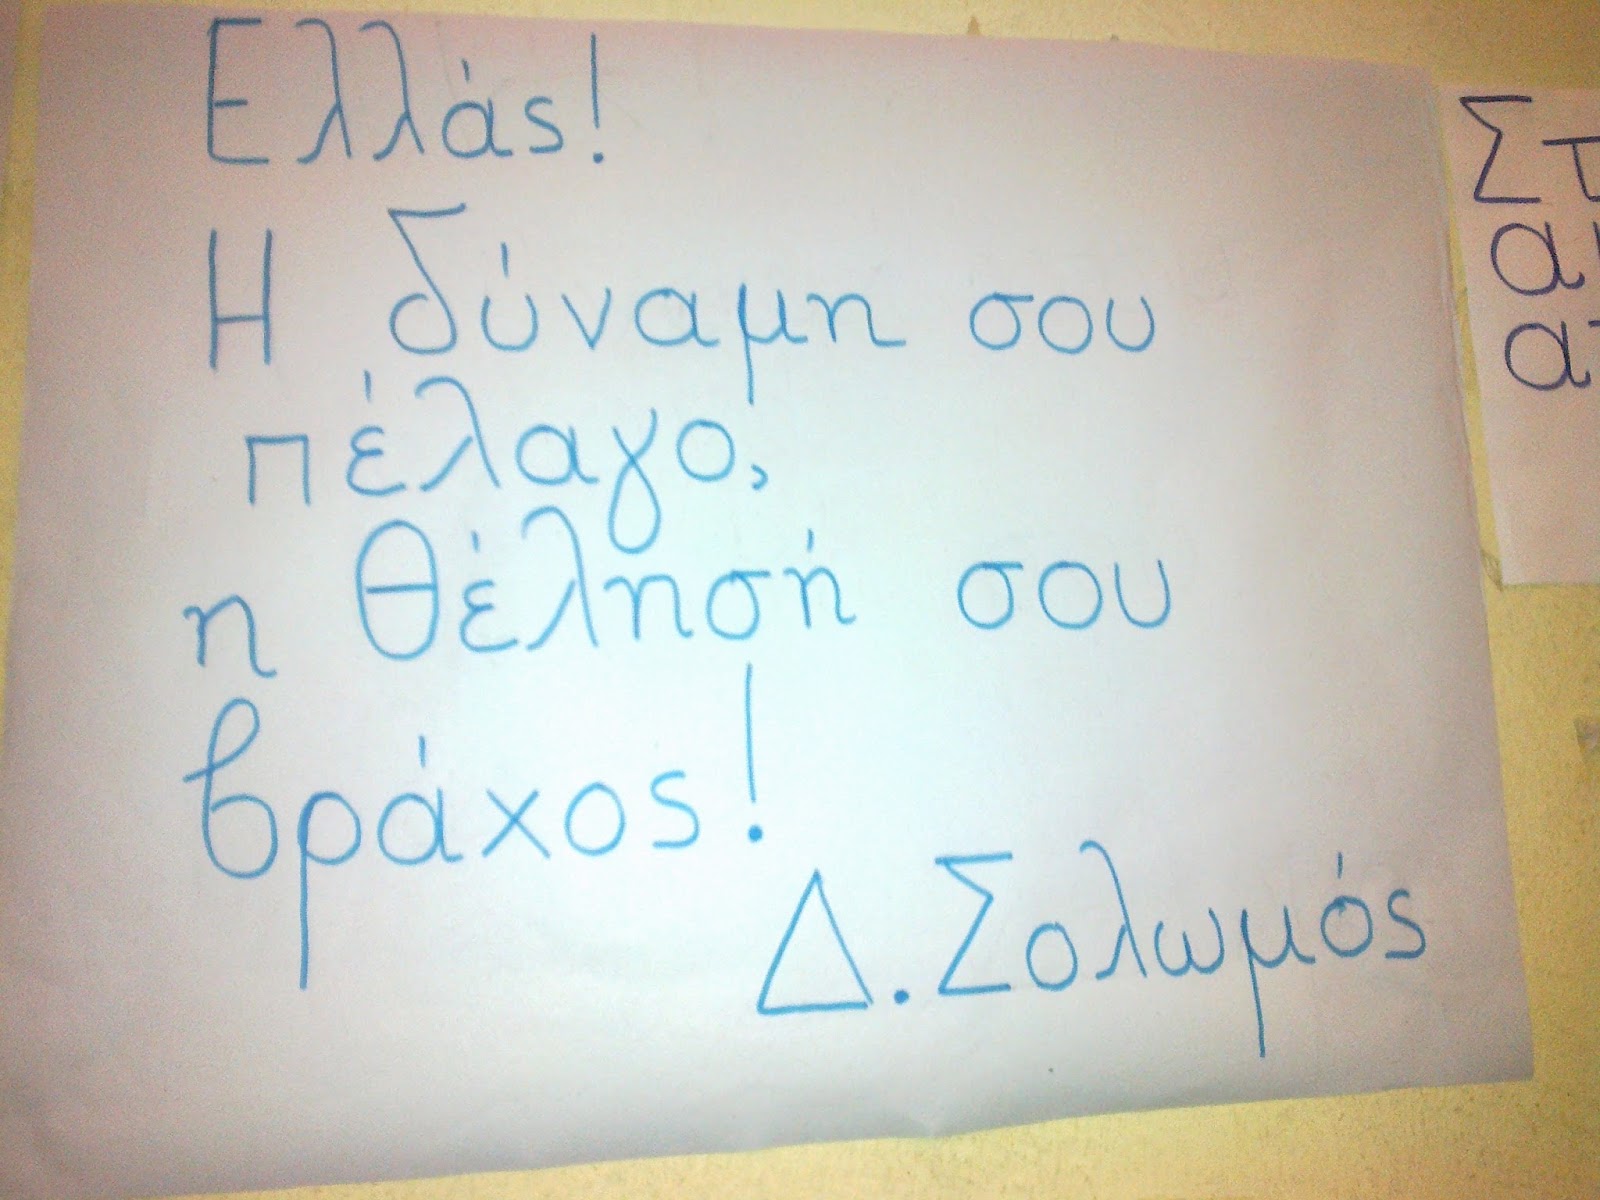 Ελλάς!
Η δύναμη σου
πέλαγο,
η θέλησή σου
βράχος!
Δ. Σολωμός